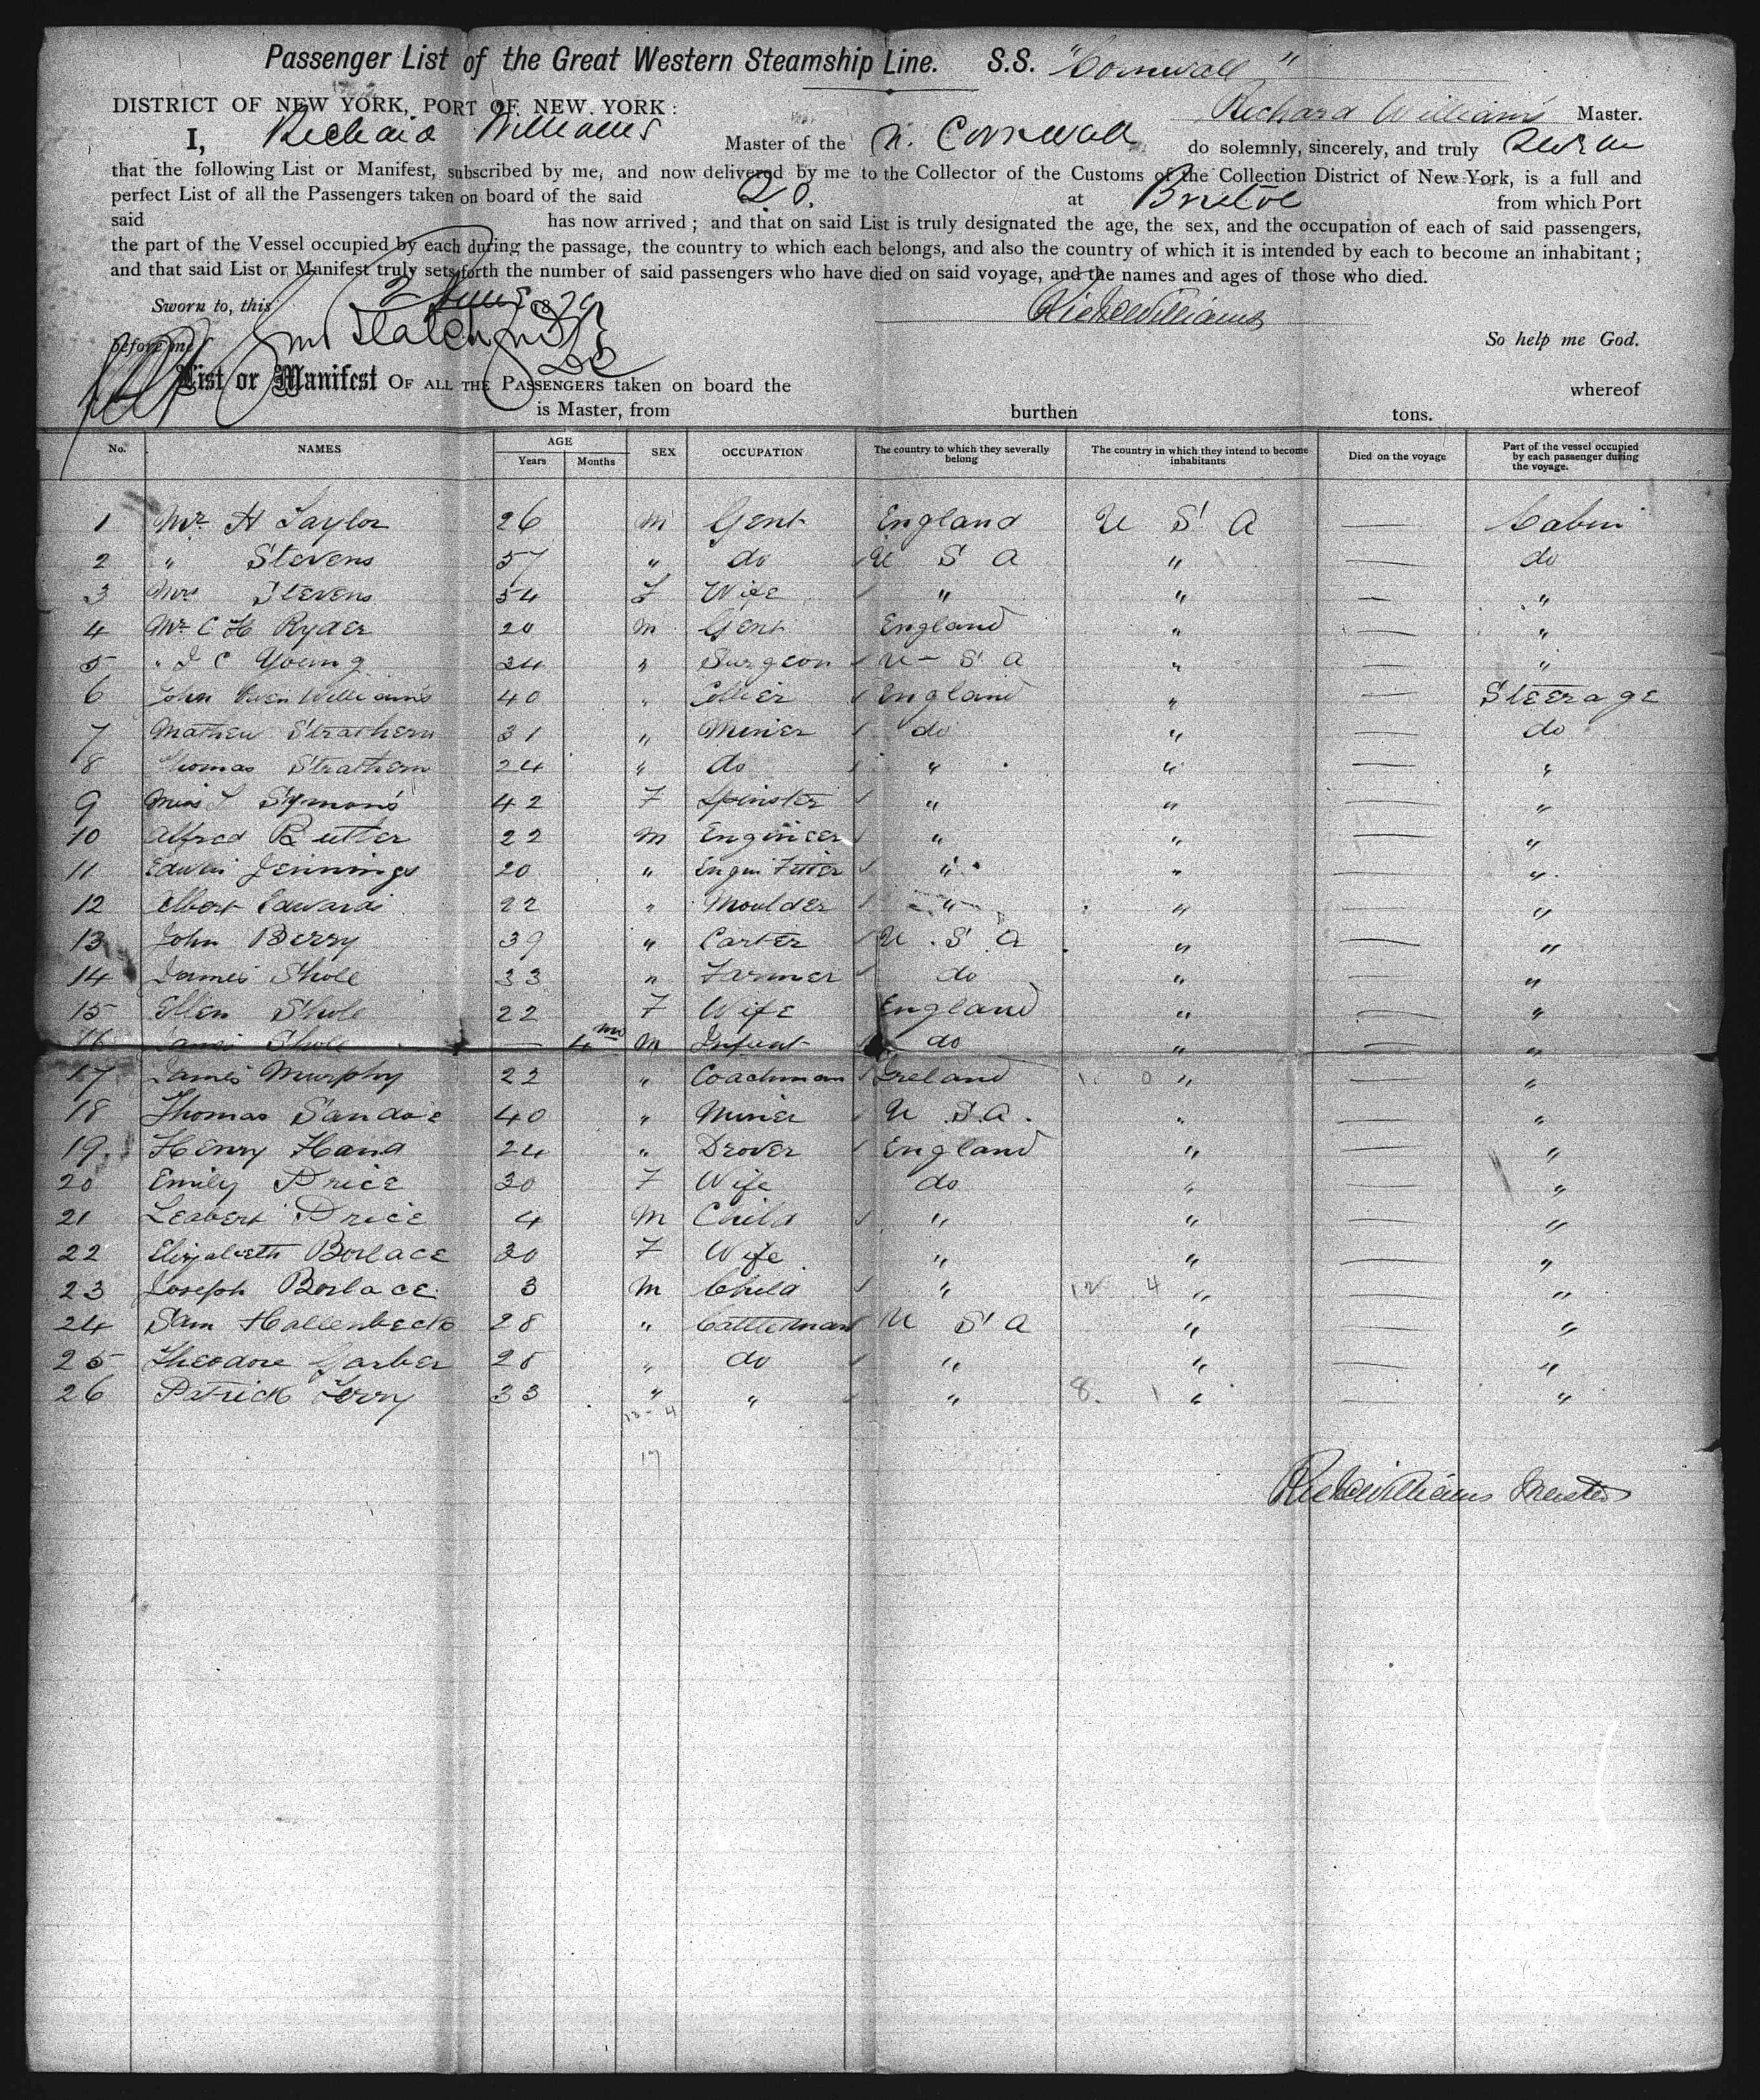 Passenger List of the Great Western Steamship Line. S.S. "Cornwall"
DISTRICT OF NEW YORK, PORT OF NEW YORK: Richard Williams Master.
I, Richard Williams Master of the Cornwall do solemnly, sincerely, and truly swear
that the following List or Manifest, subscribed by me, and now delivered by me to the Collector of the Customs of the Collection District of New York, is a full and
perfect List of all the Passengers taken on board of the said at Bristol from which Port
said has now arrived; and that on said List is truly designated the age, the sex, and the occupation of each of said passengers,
the part of the Vessel occupied by each during the passage, the country to which each belongs, and also the country of which it is intended by each to become an inhabitant;
and that said List or Manifest truly sets forth the number of said passengers who have died on said voyage, and the names and ages of those who died.
Sworn to, this 2 June 1879 Richd Williams
before me So help me God.
List or Manifest OF ALL THE PASSENGERS taken on board the whereof
is Master, from burthen tons.
No. NAMES AGE Years Months SEX OCCUPATION The country to which they severally belong The country in which they intend to become inhabitants Died on the voyage Part of the vessel occupied by each passenger during the voyage.
1 Mr H Taylor 26 M Gent England U S A — Cabin
2 " Stevens 57 " do U S A " — do
3 Mrs Stevens 54 F Wife " " — "
4 Mr C H Ryder 20 M Gent England " — "
5 " J C Young 24 " Surgeon U-S A " — "
6 John Owen Williams 40 " Collier England " — Steerage
7 Mathew Strathern 31 " Miner do " — do
8 Thomas Strathern 24 " do " " — "
9 Miss J Symons 42 F Spinster " " — "
10 Alfred Rutter 22 M Engineer " " — "
11 Edwin Jennings 20 " Engin Fitter " " — "
12 Albert Edwards 22 " Moulder " " — "
13 John Berry 39 " Carter U.S.A " — "
14 James Shole 33 " Farmer do " — "
15 Ellen Shole 22 F Wife England " — "
16 James Shole — 4 mo M Infant do " — "
17 James Murphy 22 " Coachman Ireland " — "
18 Thomas Sandoe 40 " Miner U S.A. " — "
19 Henry Hand 24 " Drover England " — "
20 Emily Price 30 F Wife do " — "
21 Price 4 M Child " " — "
22 Elizabeth Borlace 30 F Wife " " — "
23 Joseph Borlace 3 M Child " 12 4 " — "
24 Sam Hollenbeck 28 " Cattleman U S A " — "
25 Theodore Garber 28 " do " " — "
26 Patrick Terry 33 " " " 8. 1 " — "
13-4
17
Richd Williams Master